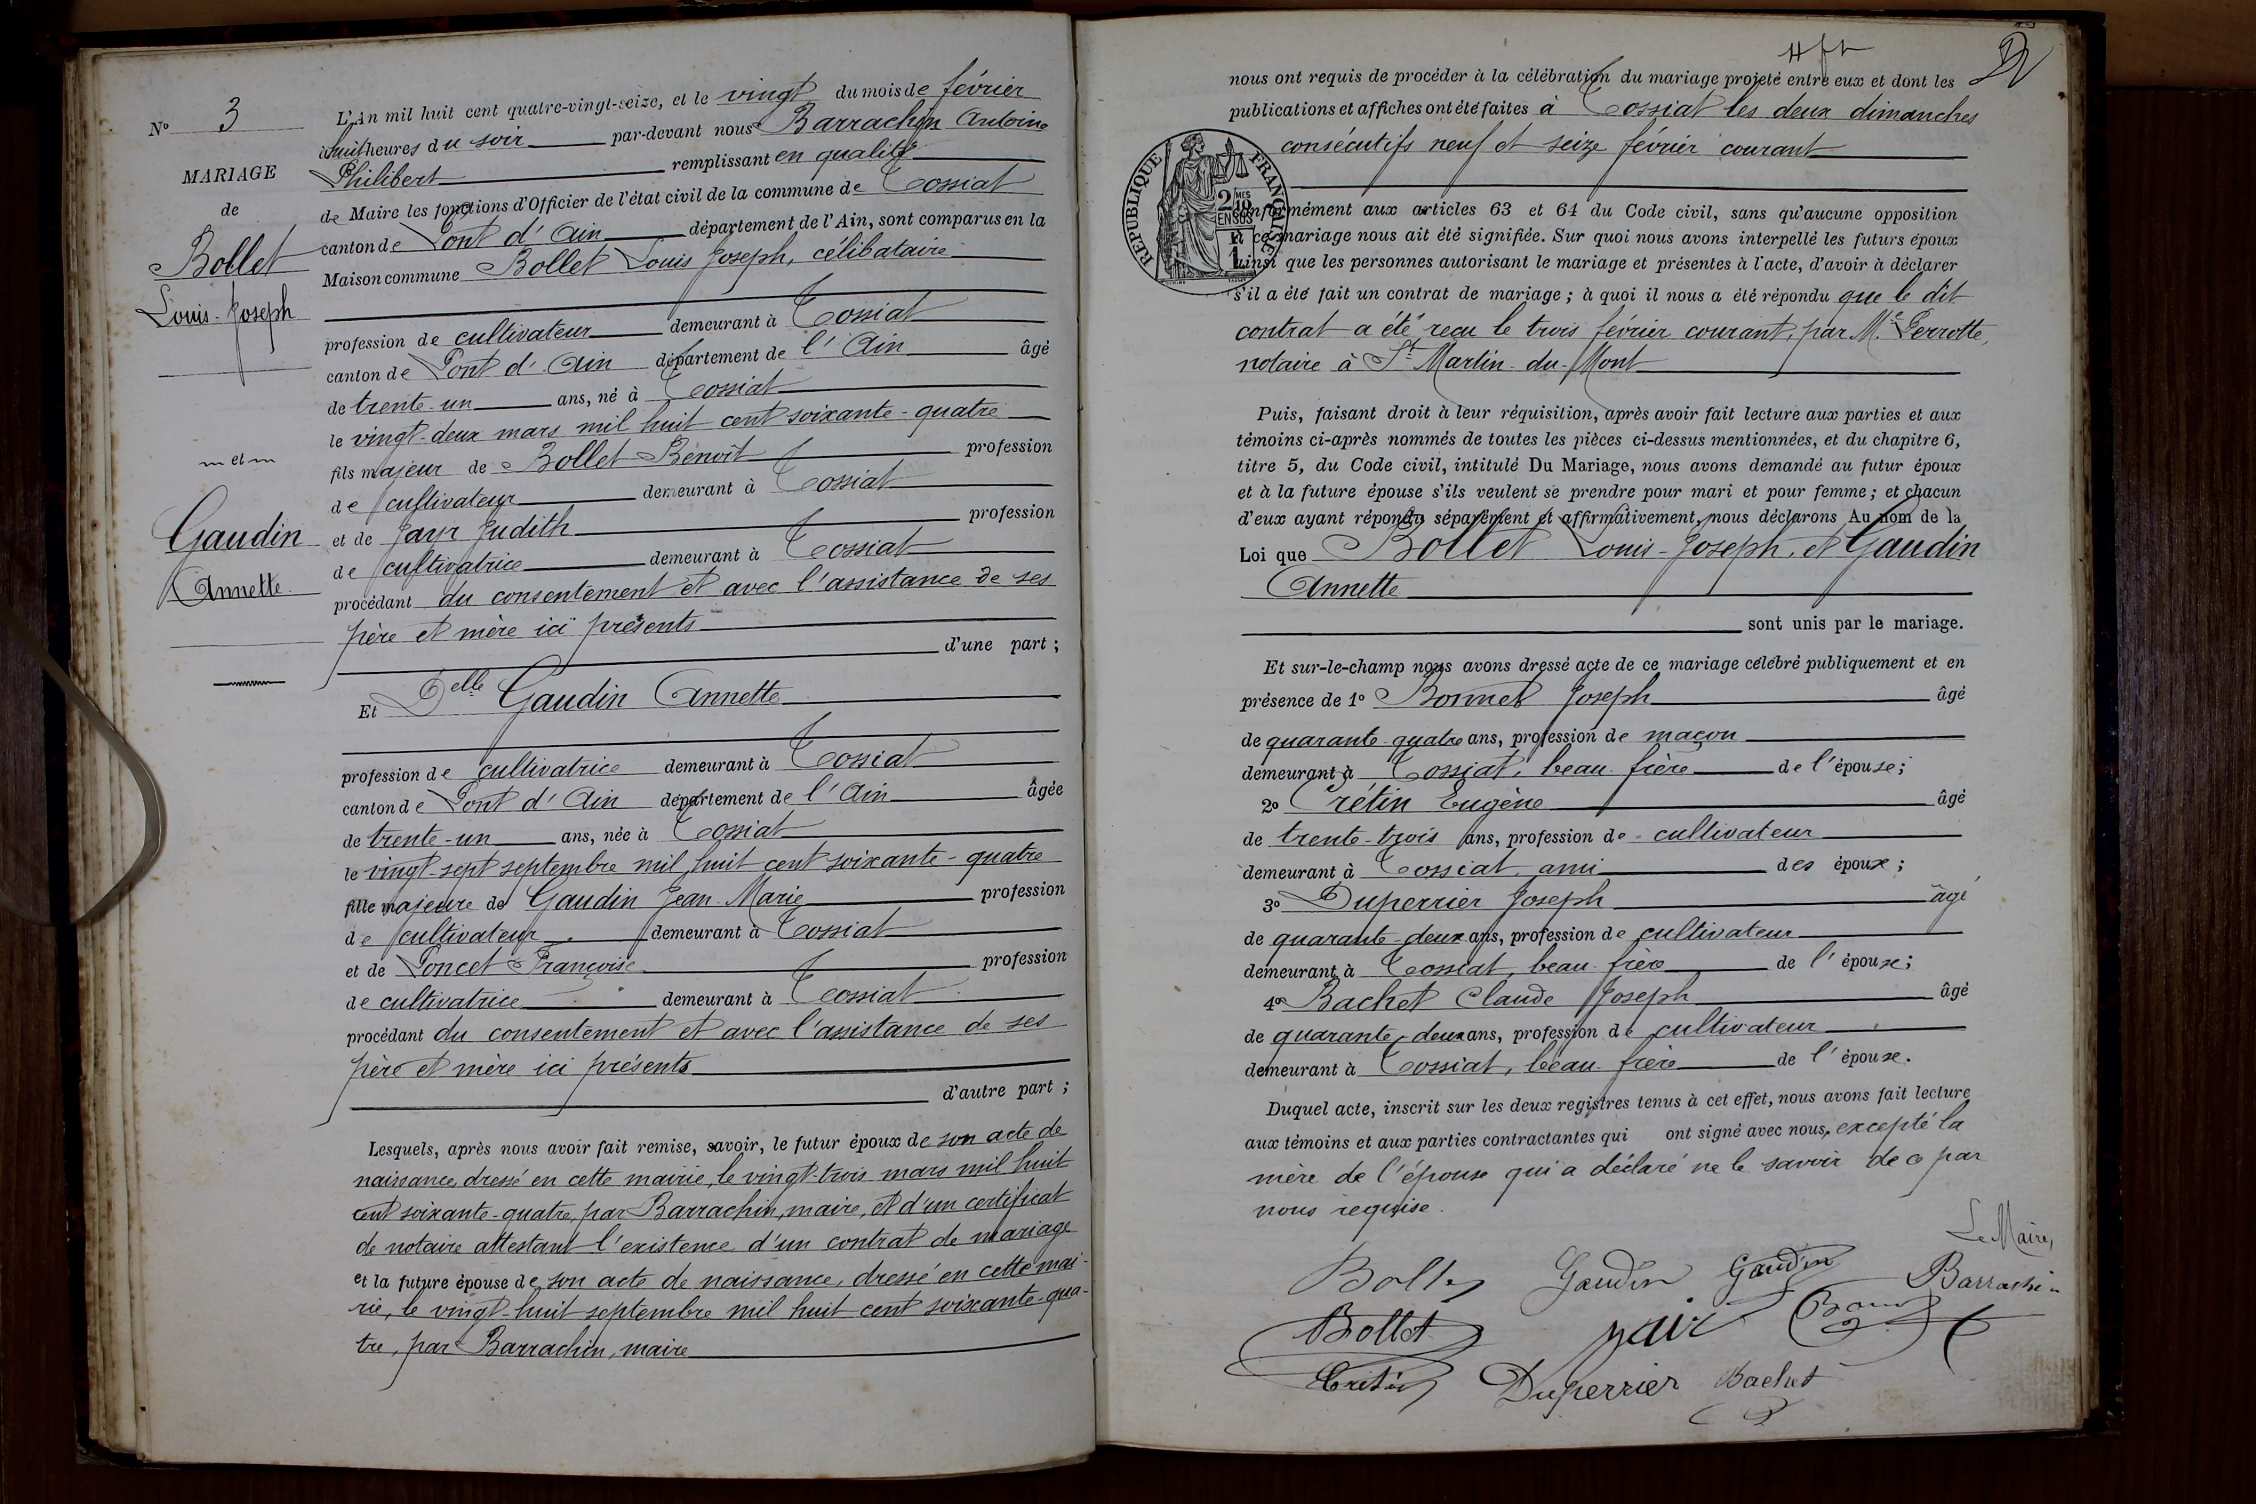 N° 3
MARIAGE
de
Bollet
Louis-Joseph
et
Gaudin
Annette
L'An mil huit cent quatre-vingt-seize, et le vingt du mois de février
à huit heures du soir par-devant nous Barrachin Antoine
Philibert remplissant en qualité
de Maire les fonctions d'Officier de l'état civil de la commune de Tossiat
canton de Pont d'Ain département de l'Ain, sont comparus en la
Maison commune Bollet Louis Joseph, célibataire
profession de cultivateur demeurant à Tossiat
canton de Pont d'Ain département de l'Ain âgé
de trente-un ans, né à Tossiat
le vingt-deux mars mil huit cent soixante-quatre
fils majeur de Bollet Benoît profession
de cultivateur demeurant à Tossiat
et de Jayr Judith profession
de cultivatrice demeurant à Tossiat
procédant du consentement et avec l'assistance de ses
père et mère ici présents
d'une part ;
Et Delle Gaudin Annette
profession de cultivatrice demeurant à Tossiat
canton de Pont d'Ain département de l'Ain âgée
de trente-un ans, née à Tossiat
le vingt-sept septembre mil huit cent soixante-quatre
fille majeure de Gaudin Jean-Marie profession
de cultivateur demeurant à Tossiat
et de Poncet Françoise profession
de cultivatrice demeurant à Tossiat
procédant du consentement et avec l'assistance de ses
père et mère ici présents
d'autre part ;
Lesquels, après nous avoir fait remise, savoir, le futur époux de son acte de
naissance, dressé en cette mairie, le vingt-trois mars mil huit
cent soixante-quatre, par Barrachin, maire, et d'un certificat
de notaire attestant l'existence d'un contrat de mariage
et la future épouse de son acte de naissance, dressé en cette mai-
rie, le vingt-huit septembre mil huit cent soixante-qua-
tre, par Barrachin, maire
nous ont requis de procéder à la célébration du mariage projeté entre eux et dont les
publications et affiches ont été faites à Tossiat les deux dimanches
consécutifs neuf et seize février courant
REPUBLIQUE FRANÇAISE
2 MES
10
EN SUS
1
conformément aux articles 63 et 64 du Code civil, sans qu'aucune opposition
à ce mariage nous ait été signifiée. Sur quoi nous avons interpellé les futurs époux
ainsi que les personnes autorisant le mariage et présentes à l'acte, d'avoir à déclarer
s'il a été fait un contrat de mariage ; à quoi il nous a été répondu que le dit
contrat a été reçu le trois février courant, par Me Perrotte,
notaire à St Martin-du-Mont
Puis, faisant droit à leur réquisition, après avoir fait lecture aux parties et aux
témoins ci-après nommés de toutes les pièces ci-dessus mentionnées, et du chapitre 6,
titre 5, du Code civil, intitulé Du Mariage, nous avons demandé au futur époux
et à la future épouse s'ils veulent se prendre pour mari et pour femme ; et chacun
d'eux ayant répondu séparément et affirmativement, nous déclarons Au nom de la
Loi que Bollet Louis-Joseph, et Gaudin
Annette
sont unis par le mariage.
Et sur-le-champ nous avons dressé acte de ce mariage célébré publiquement et en
présence de 1° Bonnet Joseph âgé
de quarante-quatre ans, profession de maçon
demeurant à Tossiat, beau-frère de l'épouse ;
2° Crétin Eugène âgé
de trente-trois ans, profession de cultivateur
demeurant à Tossiat, ami des époux ;
3° Duperrier Joseph âgé
de quarante-deux ans, profession de cultivateur
demeurant à Tossiat, beau-frère de l'épouse ;
4° Bachet Claude Joseph âgé
de quarante-deux ans, profession de cultivateur
demeurant à Tossiat, beau-frère de l'épouse.
Duquel acte, inscrit sur les deux registres tenus à cet effet, nous avons fait lecture
aux témoins et aux parties contractantes qui ont signé avec nous, excepté la
mère de l'épouse qui a déclaré ne le savoir de ce par
nous requise.
Le Maire,
Bollet Gaudin Gaudin Barrachin
Bollet Jair
Cretin Duperrier Bachet